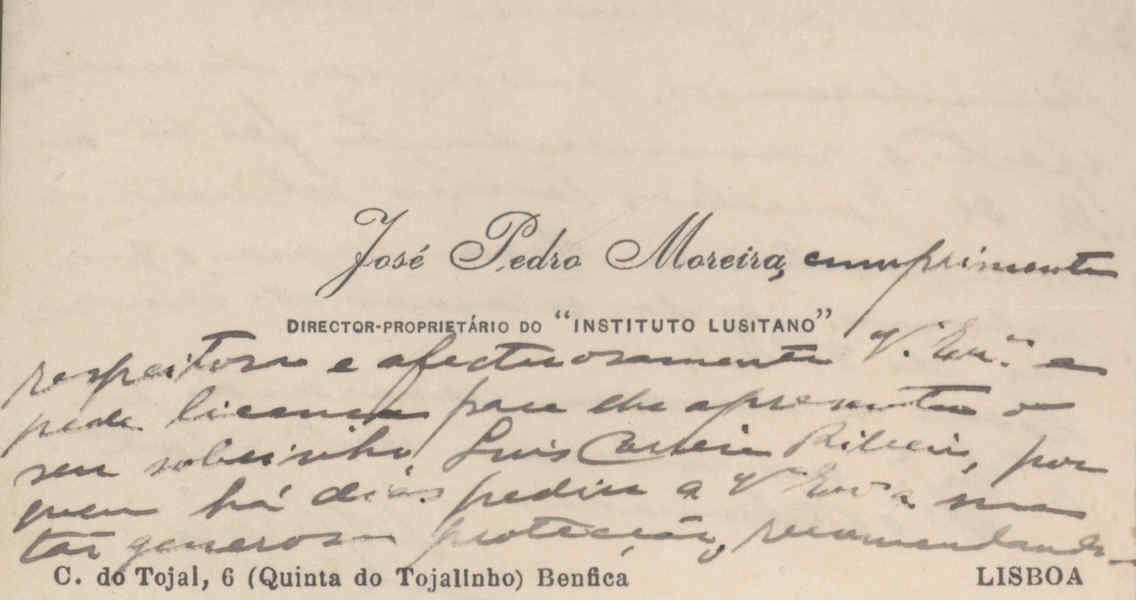 José Pedro Moreira, cumprimenta
DIRECTOR-PROPRIETÁRIO DO "INSTITUTO LUSITANO"
respeitosa e afectuosamente V. Ex.ª e
pede licença para lhe apresentar o
seu sobrinho, Luis Ribeiro, por
quem há dias pediu a V Exª a sua
tão generosa protecção, recomendando-
C. do Tojal, 6 (Quinta do Tojalinho) Benfica
LISBOA